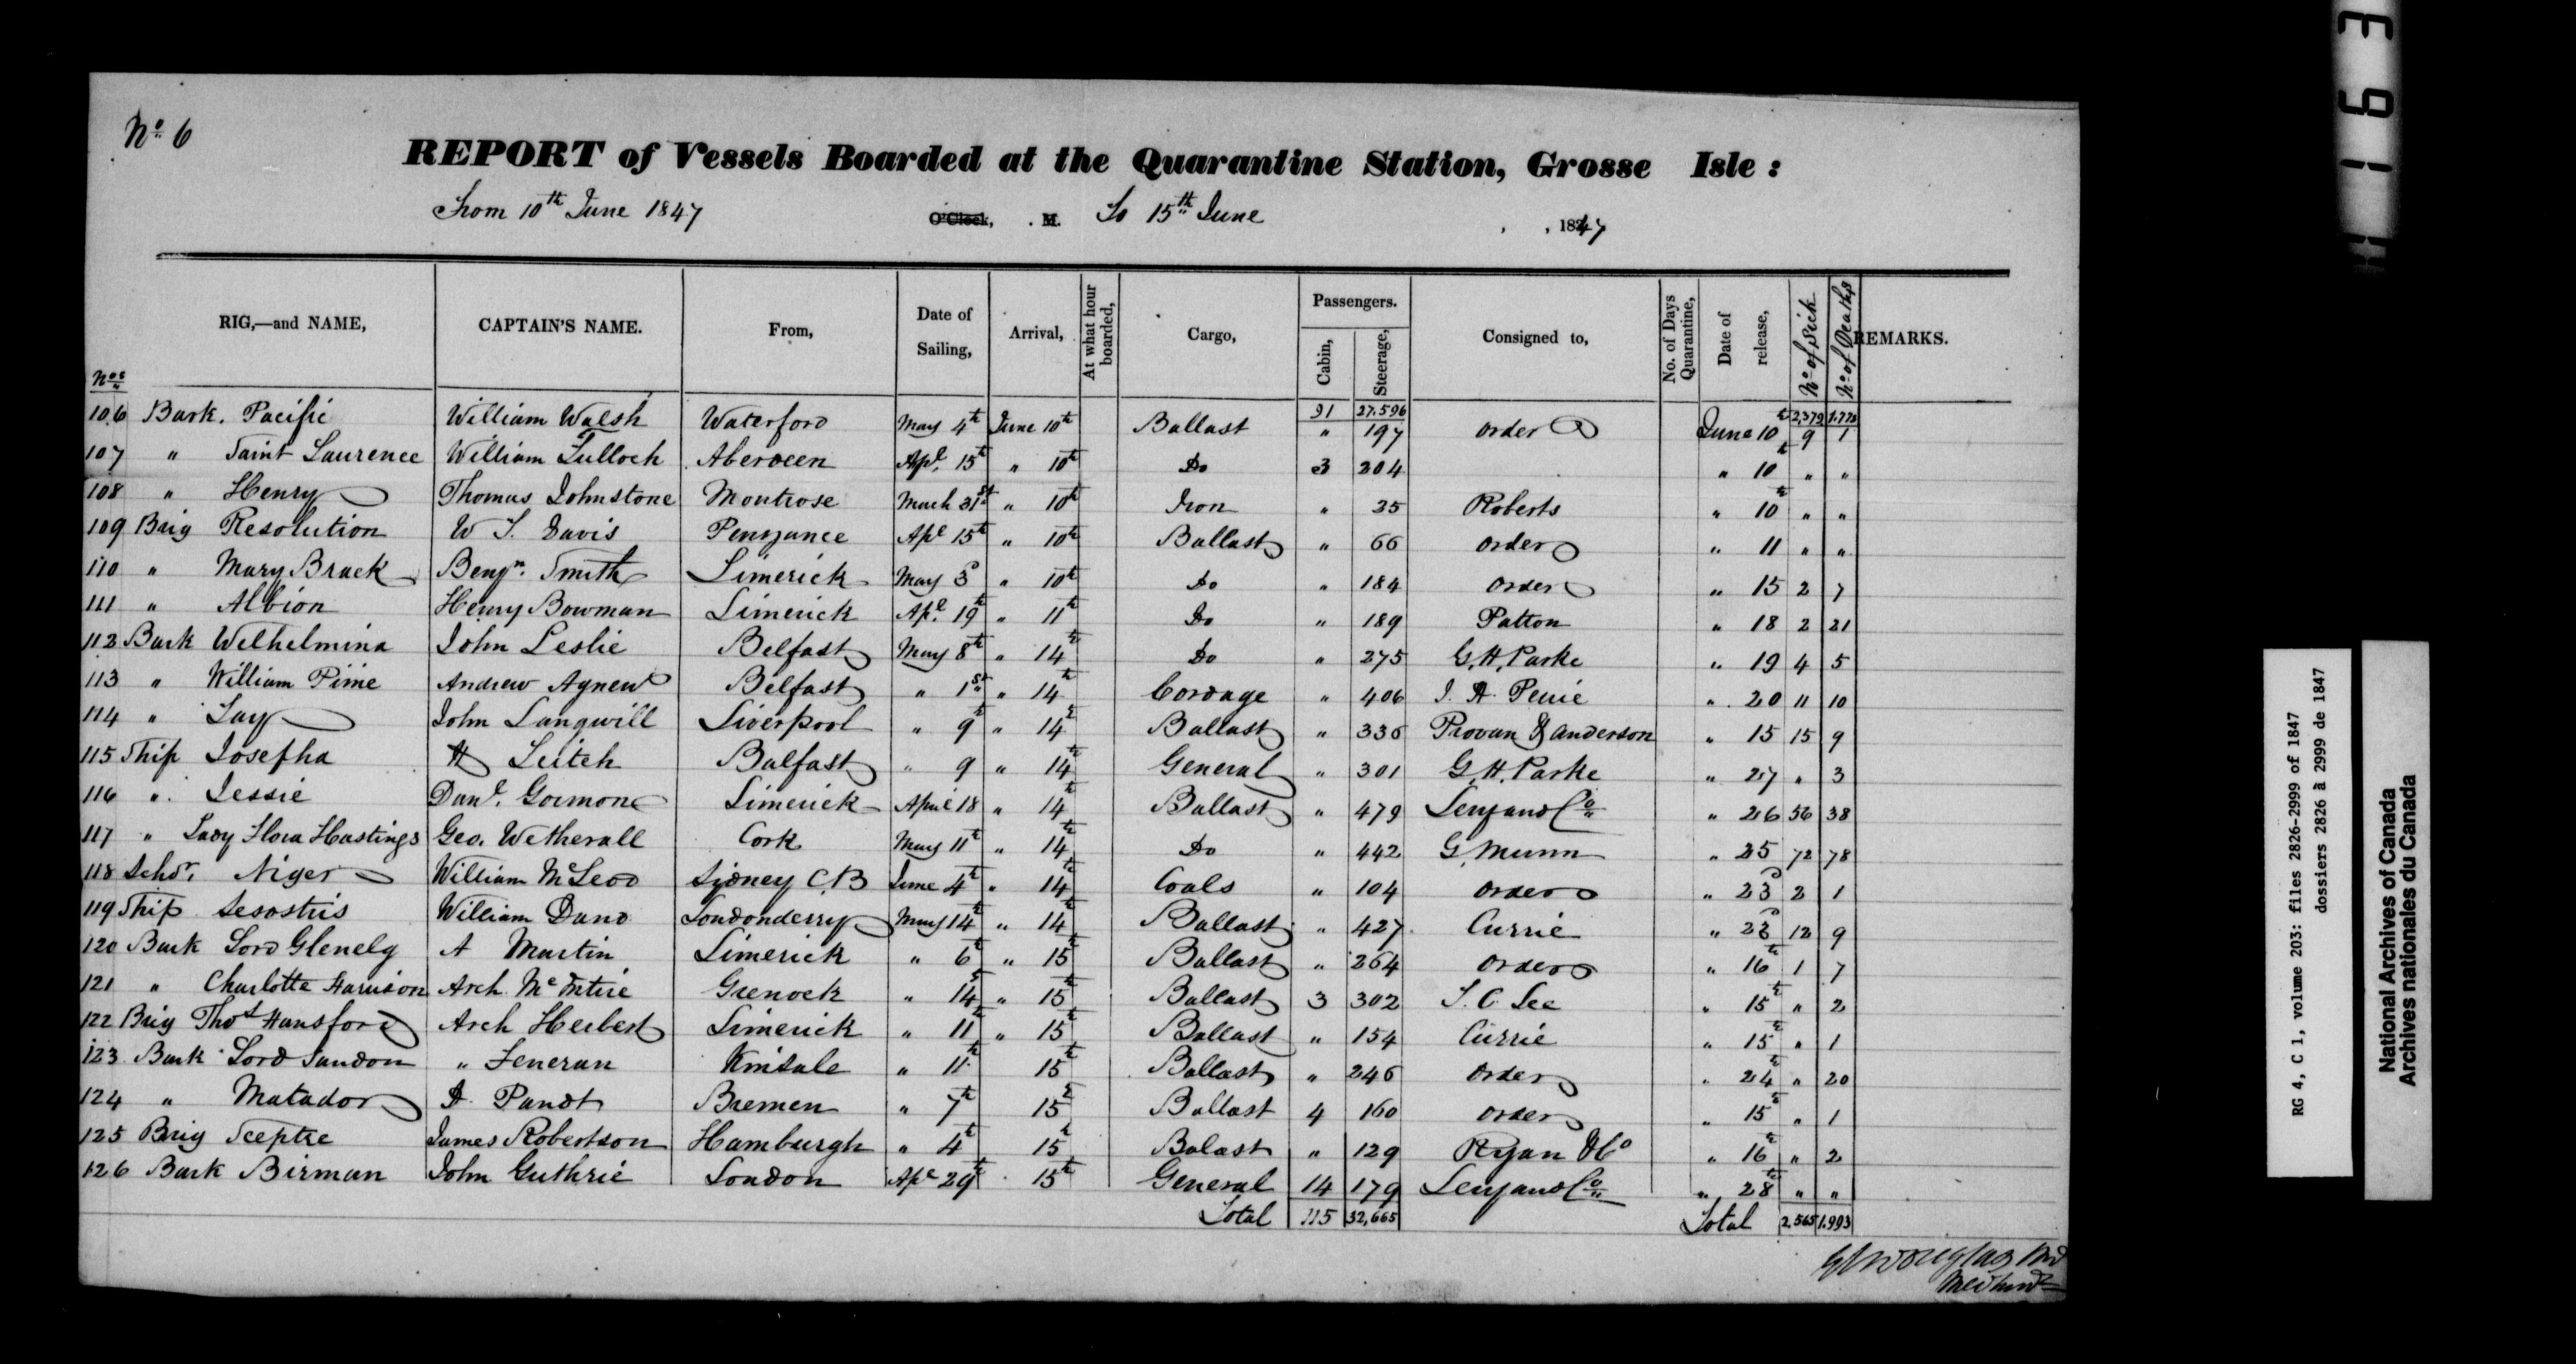 No. 6
REPORT of Vessels Boarded at the Quarantine Station, Grosse Isle :
From 10th June 1847 O'Clock, . M. To 15th June , , 1847
Nos RIG,—and NAME, CAPTAIN'S NAME. From, Date of Sailing, Arrival, At what hour boarded, Cargo, Passengers. Cabin, Steerage, Consigned to, No. of Days Quarantine, Date of release, No. of Sick No. of Deaths REMARKS.
91 27,596 2,379 1,778
106 Bark. Pacific William Walsh Waterford May 4th June 10th Ballast " 197 order June 10th 9 1
107 " Saint Laurence William Tulloch Aberdeen Apl. 15th " 10th Do 3 204 " 10th " "
108 " Henry Thomas Johnstone Montrose March 31st " 10th Iron " 35 Roberts " 10th " "
109 Brig Resolution W S. Davis Penzance Apl 15th " 10th Ballast " 66 order " 11 " "
110 " Mary Brack Benjn. Smith Limerick May 3d " 10th Do " 184 order " 15 2 7
111 " Albion Henry Bowman Limerick Apl. 19th " 11th Do " 189 Patton " 18 2 21
112 Bark Welhelmina John Leslie Belfast May 8th " 14th Do " 275 G. H. Parke " 19 4 5
113 " William Pirie Andrew Agnew Belfast " 1st " 14th Cordage " 406 J. A. Pirrie " 20 11 10
114 " Tay John Langwill Liverpool " 9th " 14th Ballast " 336 Provan & Anderson " 15 15 9
115 Ship Josepha H Leitch Balfast " 9 " 14th General " 301 G. H. Parke " 27 " 3
116 " Jessie Danl. Gormone Limerick April 18 " 14th Ballast " 479 and Co " 26 56 38
117 " Lady Flora Hastings Geo. Wetherall Cork May 11th " 14th Do " 442 G. Munn " 25 72 78
118 Schdr. Niger William McLeod Sydney C.B June 4th " 14th Coals " 104 order " 23d 2 1
119 Ship Sesostris William Dand Londonderry May 14th " 14th Ballast " 427 Currie " 23d 12 9
120 Bark Lord Glenelg A Martin Limerick " 6th " 15th Ballast " 264 order " 16th 1 7
121 " Charlotte Harrison Arch. McIntire Grenock " 14th " 15th Ballast 3 302 T. C. Lee " 15th " 2
122 Brig Thos Hansford Arch Herbert Limerick " 11th " 15th Ballast " 154 Currie " 15th " 1
123 Bark Lord Sandon " Feneran Kinsale " 11th 15th Ballast " 246 order " 24th " 20
124 " Matador D. Pandt Bremen " 7th 15th Ballast 4 160 order " 15th " 1
125 Brig Sceptre James Robertson Hamburgh " 4th 15th Balast " 129 Ryan & Co " 16th " 2
126 Bark Birman John Guthrie London Apl 29th 15th General 14 179 and Co " 28th " "
Total 115 32,665 Total 2,565 1,993
Douglas MD
1163
RG 4, C 1, volume 203: files 2826-2999 of 1847
dossiers 2826 à 2999 de 1847
National Archives of Canada
Archives nationales du Canada